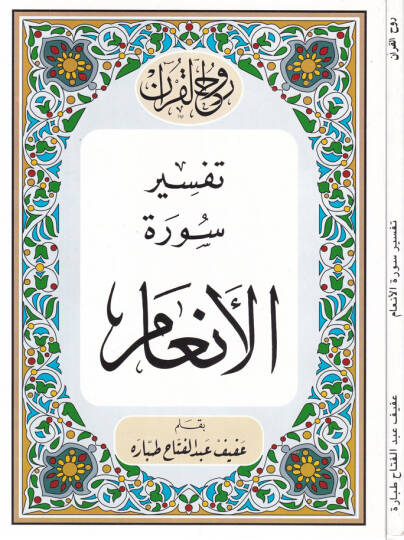 روح القرآن
تفسير
سورة
الأنعام
بقلم
عفيف عبد الفتاح طبّاره
روح القرآن
تفسير سورة الأنعام
عفيف عبد الفتاح طبارة